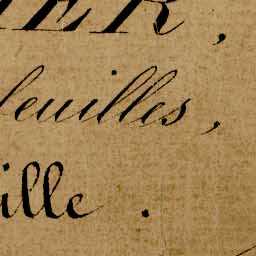 IER,
feuilles,
ille.